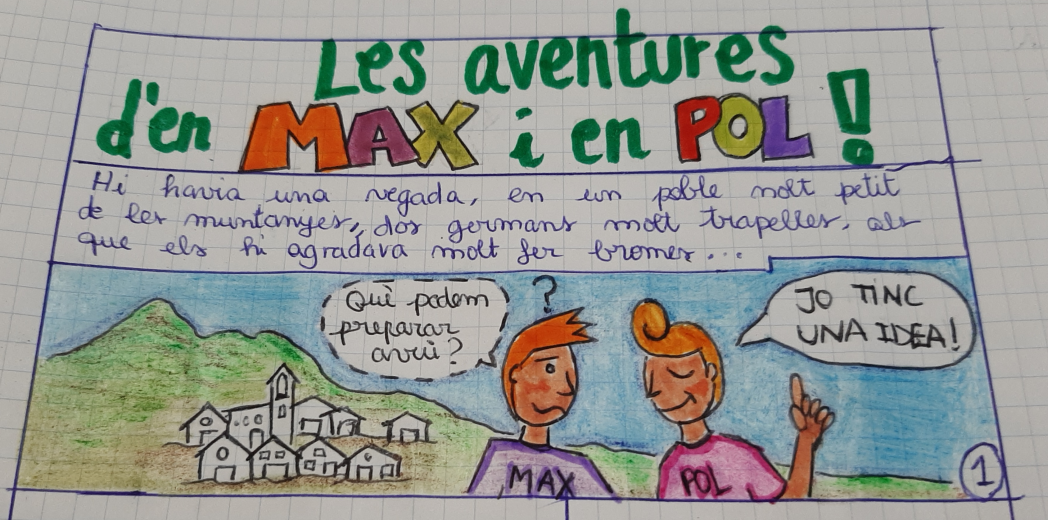 Les aventures
d'en MAX i en POL!
Hi havia una vegada, en un poble molt petit
de les muntanyes, dos germans molt trapelles, als
que els hi agradava molt fer bromes...
Què podem
preparar
avui?
?
JO TINC
UNA IDEA!
MAX
POL
1